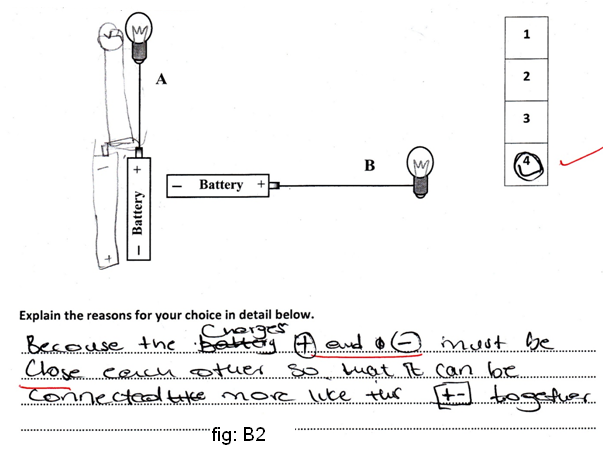 1
2
A
3
B
4
+
Battery
−
− Battery +
−
+
Explain the reasons for your choice in detail below.
Charges
Because the battery + and − must be
Close each other so that it can be
Connected like more like this +- together
fig: B2